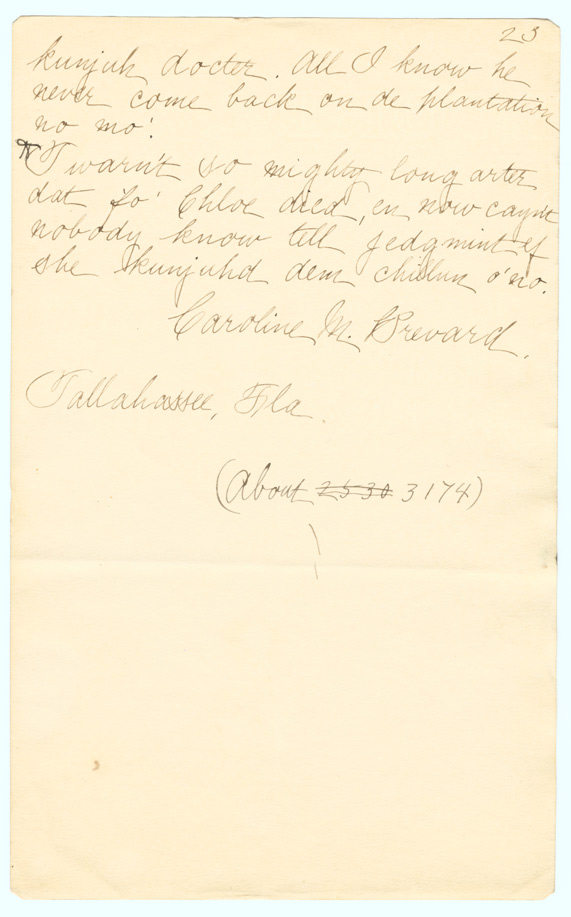 23
kunjuh docter. All I know he
never come back on de plantation
no mo'.
'Twarn't so mighty long arter
dat fo' Chloe died, en now cayn't
nobody know tell jedgmint ef
she kunjuhd dem chillun o' no.
Caroline M. Brevard.
Tallahassee, Fla.
(About 2530 3174)